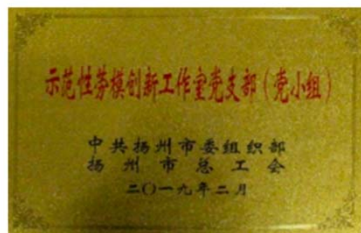 示范性劳模创新工作室党支部（党小组）
中共扬州市委组织部
扬州市总工会
二〇一九年二月